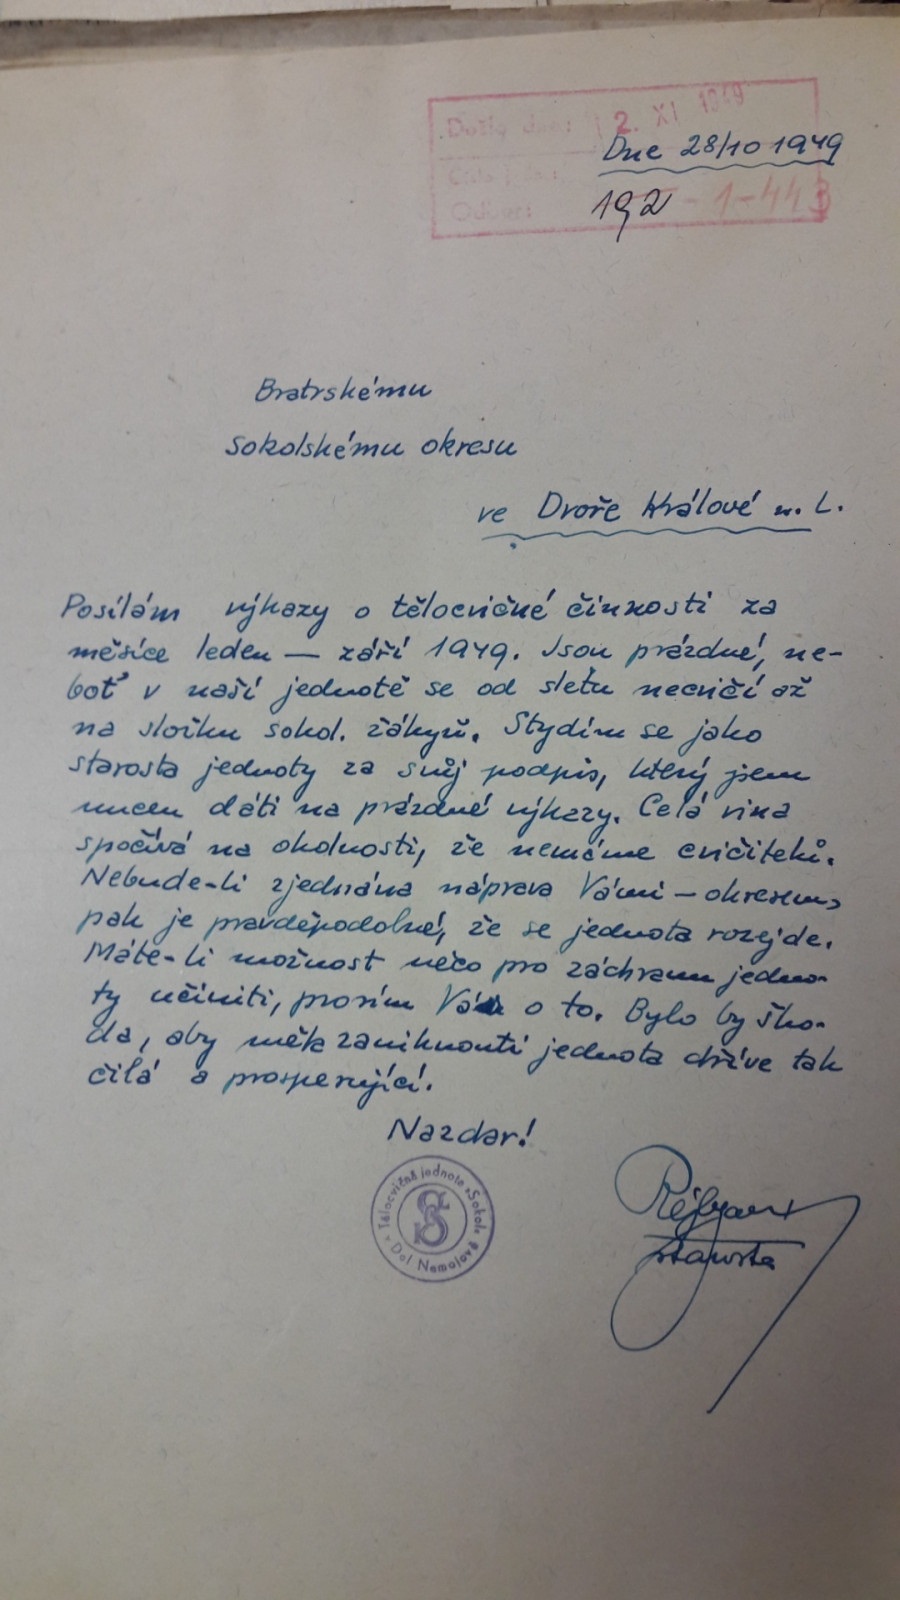 Došlo dne: 2. XI 1949
Dne 28/10 1949
Odbor: 192 - 1-443
Bratrskému
Sokolskému okresu
ve Dvoře Králové n. L.
Posílám výkazy o tělocvičné činnosti za
měsíce leden — září 1949. Jsou prázdné, ne-
boť v naší jednotě se od sletu necvičí až
na složku sokol. žákyň. Stydím se jako
starosta jednoty za svůj podpis, který jsem
nucen dáti na prázdné výkazy. Celá vina
spočívá na okolnosti, že nemáme cvičitelů.
Nebude-li zjednána náprava Vámi — okresem,
pak je pravděpodobné, že se jednota rozejde.
Máte-li možnost něco pro záchranu jedno-
ty učiniti, prosím Vás o to. Bylo by ško-
da, aby měla zaniknouti jednota dříve tak
čilá a prosperující.
Nazdar!
Tělocvičná jednota "Sokol"
v Dol Nemojově
starosta